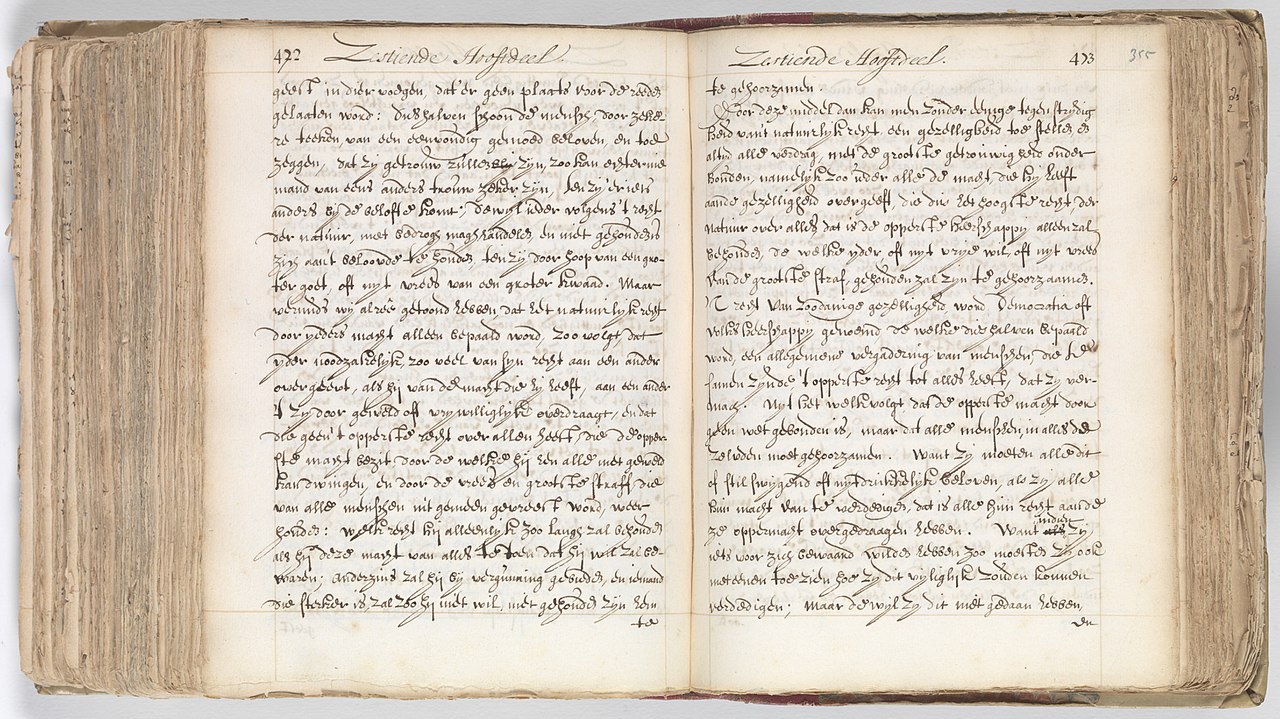 422 Zestiende Hooftdeel.
geest in dier voegen, dat'er geen plaats voor de reeden
gelaaten word: dieshalven schoon de menschen, door zeke-
re teeken van een eenvoudig gemoed beloven, en toe
zeggen, dat zy getrouw zullen zijn, zoo kan echter nie
mand van eens anders trouw zeker zijn, ten zy 'er iets
anders by de belofte komt; dewijl ieder volgens 't recht
der natuur, met bedrogh magh handelen en niet gehouden is
zich aan't beloovde te houden, ten zy door hoop van een gro-
ter goet, oft uyt vrees van een groter kwaad. Maar
vermids wy alreê getoond hebben, dat het natuurlyk recht
door yeders macht alleen bepaald word, zoo volgt, dat
yder noodzakelijk, zoo veel van sijn recht aan een ander
overgeeft, als hij van de macht die hy heeft, aan een ander
't zy door geweld oft vrywilliglijk overdraagt, en dat
die geen 't opperste recht over allen heeft, die de opper-
ste macht bezit, door de welke hij hen alle met geweld
kan dwingen, en door de vrees en grootste straff, die
van alle menschen in't gemeen gevreest word, weer
houden: welk recht hij alleenlyk zoo langh zal behouden
als hij deze macht van alles te doen dat hij wil zal be-
waren; anderzins zal hij by vergunning gebieden, en iemand
die sterker is, zal zoo hij niet wil, niet gehouden zijn hem
te
Zestiende Hooftdeel. 423 355
te gehoorzamen.
Door deze middel dan kan men zonder eenige tegen strydig
heid van't natuurlyk recht een gezelligheid toe stellen en
altyd alle verdrag, met de grootste getrouwigheid onder
houden, namelyk zoo ieder alle de macht, die hy heeft
aan de gezelligheid overgeeft, die dies het hoogste recht, der
natuur over alles, dat is de opperste heerschappy alleen zal
behouden, de welke yder oft uyt vrije wil, oft uyt vrees
van de grootste straf, gehouden zal zyn te gehoorzaamen.
't recht van zoodanige gezelligheid word Democratia oft
volks heerschappy genoemd de welke dieshalven bepaald
word, een allegemene vergadering van menschen, die te
samen zynde 't opperste recht tot alles heeft, dat zy ver-
mach. Uyt het welk volgt, dat de opperste macht door
geen wet gebonden is, maar dat alle menschen, in alles de
zelvden moet gehoorzamen. Want zy moeten alle dit
of stilswygend oft uytdrukkelyk beloven, als zy alle
hun macht van te verdedigen, dat is alle hun recht aan de
ze oppermacht overgedraagen hebben. Want indien zy
iets voor zich bewaard wilden hebben, zoo moesten zy ook
met eenen toe zien hoe zy dit vyliglijk zouden konnen
verdedigen; maar dewyl zy dit niet gedaan hebben,
en